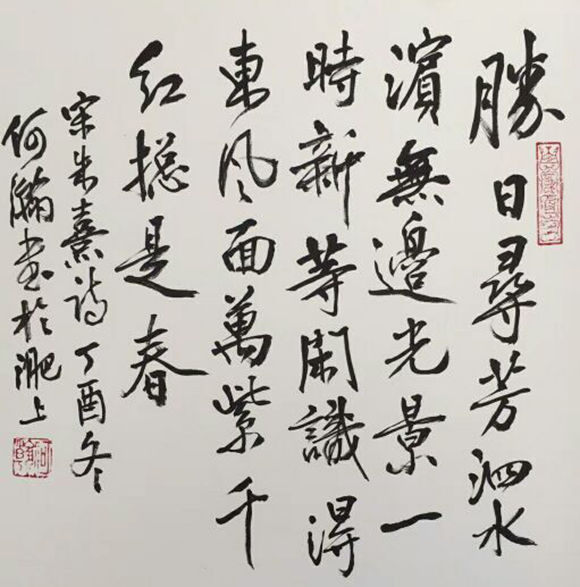 勝日尋芳泗水
濵無邊光景一
時新等閑識得
東風面萬紫千
紅摠是春
宋朱熹詩丁酉冬
何瀚书於淝上